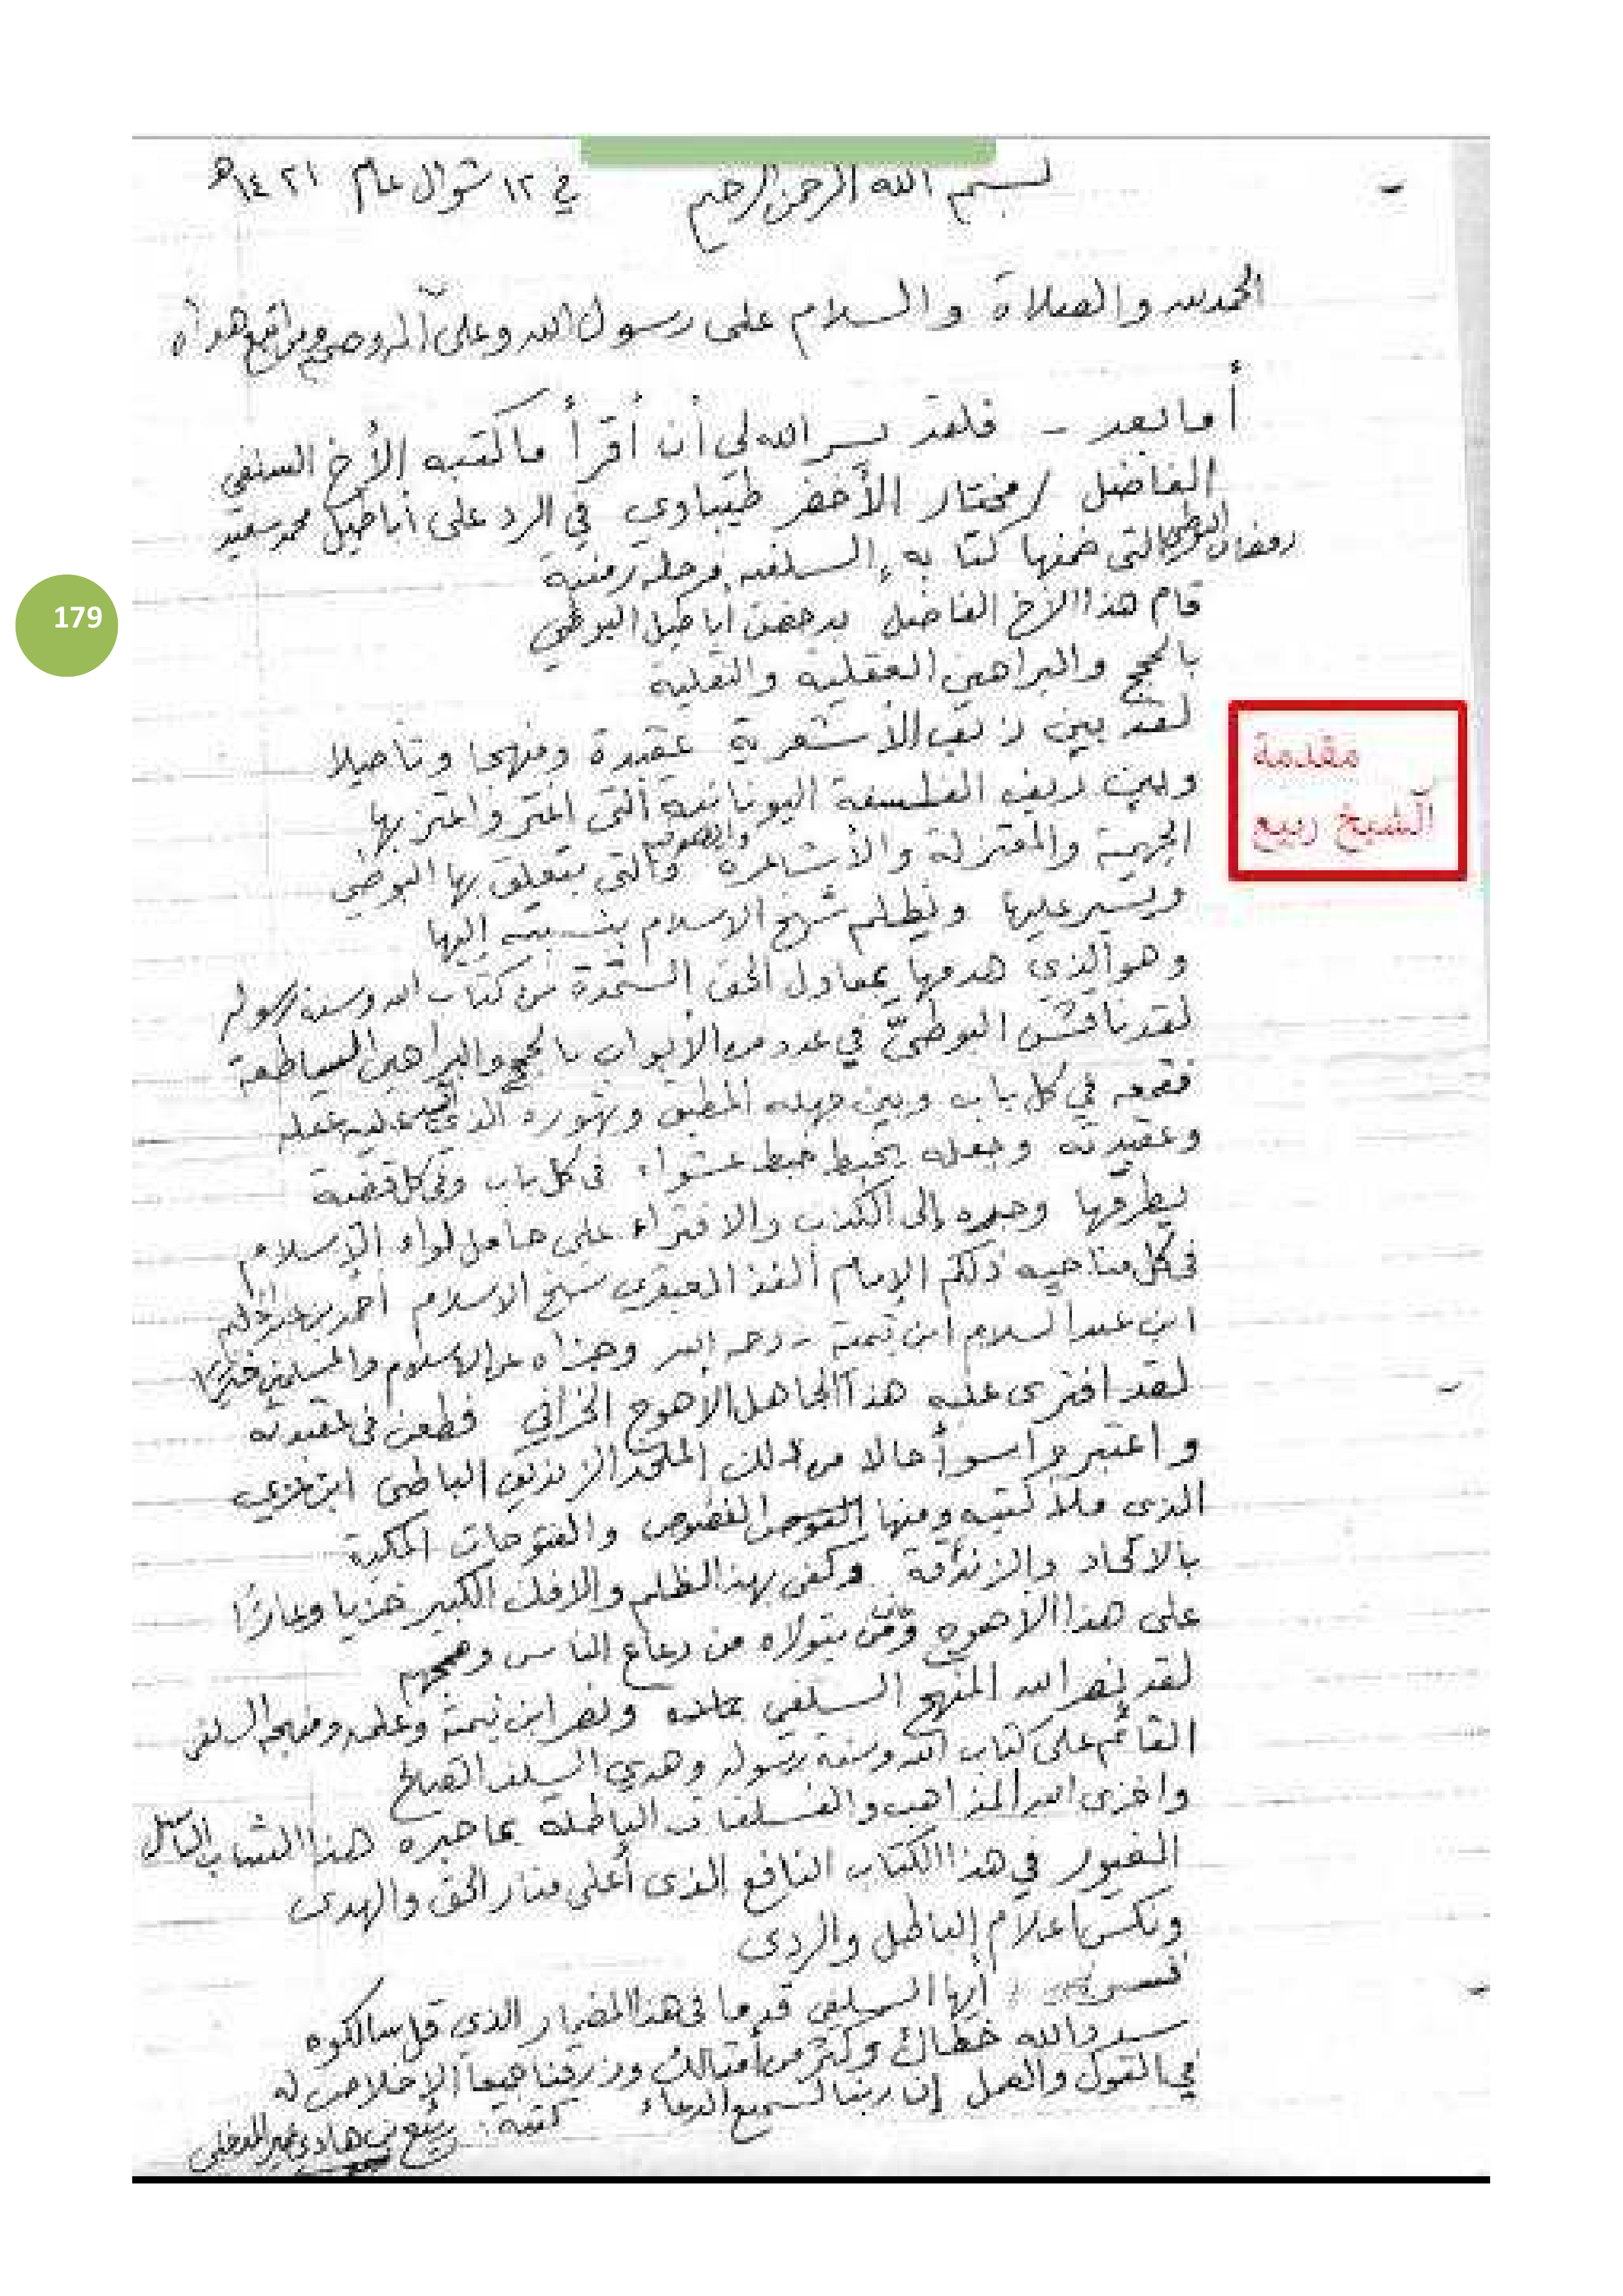 بسم الله الرحمن الرحيم في ١٢ شوال عام ١٤٢١هـ
الحمد لله والصلاة والسلام على رسول الله وعلى آله وصحبه ومن اتبع هداه
أما بعد - فلقد يسر الله لي أن أقرأ ما كتبه الأخ السلفي
الفاضل / مختار الأخضر طيباوي في الرد على أباطيل محمد سعيد
رمضان البوطي التي ضمنها كتابه السلفية مرحلة زمنية
قام هذا الأخ الفاضل بدحض أباطيل البوطي
بالحجج والبراهين العقلية والنقلية
179
لقد بين زيف الأشعرية عقيدة ومنهجا وتأصيلا
وبين زيف الفلسفة اليونانية التي اغتر واعتز بها
الجهمية والمعتزلة والأشاعرة والتي يتعلق بها البوطي
مقدمة
الشيخ ربيع
ويسير عليها ويظلم شيخ الاسلام بنسبته إليها
وهو الذي هدمها بمعاول الحق المستمدة من كتاب الله وسنة رسوله
لقد ناقش البوطيَّ في عدد من الأبواب بالحجج والبراهين الساطعة
فقمعه في كل باب وبين جهله المطبق وتهوره الذي عليه عقله
وعقيدته وجعله يخبط خبط عشواء في كل باب وفي كل قضية
يطرقها وجره إلى الكذب والافتراء على حامل لواء الإسلام
في كل مناحيه ذلكم الإمام الفذ العبقري شيخ الاسلام أحمد بن عبد الحليم
ابن عبد السلام ابن تيمية رحمه الله وجزاه عن الإسلام والمسلمين خيرًا
لقد افترى عليه هذا الجاهل الأهوج الخرافي فطعن في عقيدته
واعتبره أسوأ حالا من ذلك الملحد الزنديق الباطني ابن عربي
الذي ملأ كتبه ومنها الفصوص والفتوحات المكية
بالالحاد والزندقة وكفى بهذا الظلم والافك الكبير خزيا وعارًا
على هذا الأهوج وعلى من يتولاه من رعاع الناس وهمجهم
لقد نصر الله المنهج السلفي ونصر ابن تيمية وعلمه ومنهجه السلفي
القائم على كتاب الله وسنة رسوله وهدي السلف الصالح
واخزى الله المذاهب والفلسفات الباطلة بما حبره هذا الشاب الباسل
الغيور في هذا الكتاب النافع الذي أعلى منار الحق والهدى
ونكس أعلام الباطل والردى
فسر أيها السلفي قدما في هذا المضمار الذي قل سالكوه
سدد الله خطاك وكثر من أمثالك ورزقنا جميعا الإخلاص له
في القول والعمل إن ربنا لسميع الدعاء كتبه: ربيع بن هادي عمير المدخلي